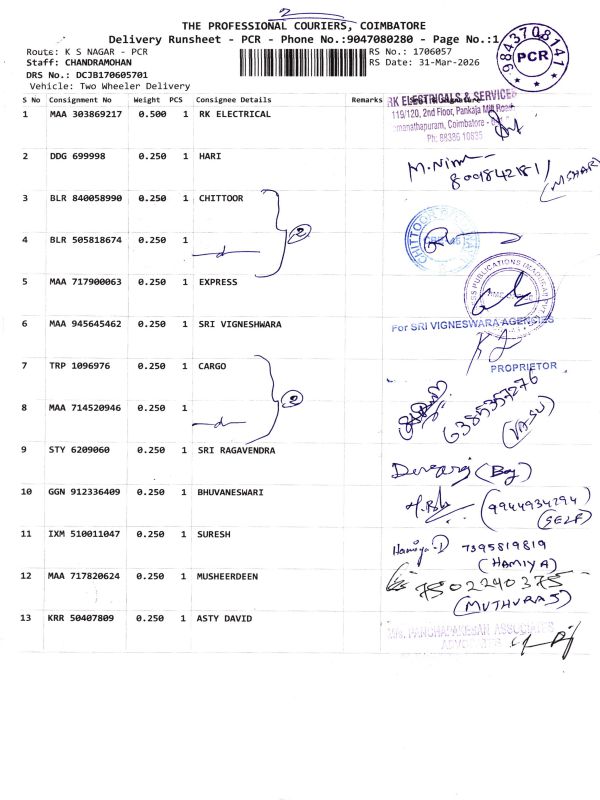 2
THE PROFESSIONAL COURIERS, COIMBATORE
Delivery Runsheet - PCR - Phone No.:9047080280 - Page No.:1
9843708141
PCR
Route: K S NAGAR - PCR
RS No.: 1706057
Staff: CHANDRAMOHAN
RS Date: 31-Mar-2026
DRS No.: DCJB170605701
Vehicle: Two Wheeler Delivery
S No Consignment No Weight PCS Consignee Details Remarks
1 MAA 303869217 0.500 1 RK ELECTRICAL
RK ELECTRICALS & SERVICES
119/120, 2nd Floor, Pankaja Mill Road
Ph: 88386 10835
2 DDG 699998 0.250 1 HARI
8001842181
3 BLR 840058990 0.250 1 CHITTOOR
2
4 BLR 505818674 0.250 1
5 MAA 717900063 0.250 1 EXPRESS
6 MAA 945645462 0.250 1 SRI VIGNESHWARA
For SRI VIGNESWARA AGENCIES
PROPRIETOR
7 TRP 1096976 0.250 1 CARGO
2
6385357276
(VASU)
8 MAA 714520946 0.250 1
9 STY 6209060 0.250 1 SRI RAGAVENDRA
10 GGN 912336409 0.250 1 BHUVANESWARI
(9944934294)
(SELF)
11 IXM 510011047 0.250 1 SURESH
Hamiya.D 7395819819
(HAMIYA)
12 MAA 717820624 0.250 1 MUSHEERDEEN
7502240375
(MUTHURAJ)
13 KRR 50407809 0.250 1 ASTY DAVID